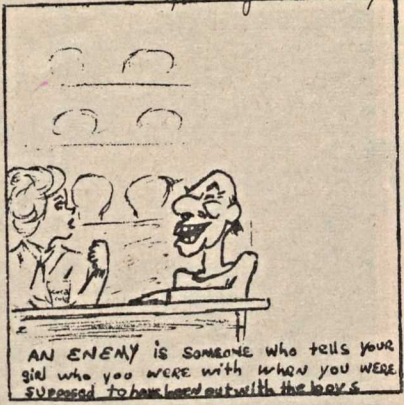 AN ENEMY is SOMEONE who tells YOUR
girl who you WERE with when you WERE
supposed to have been out with the boys